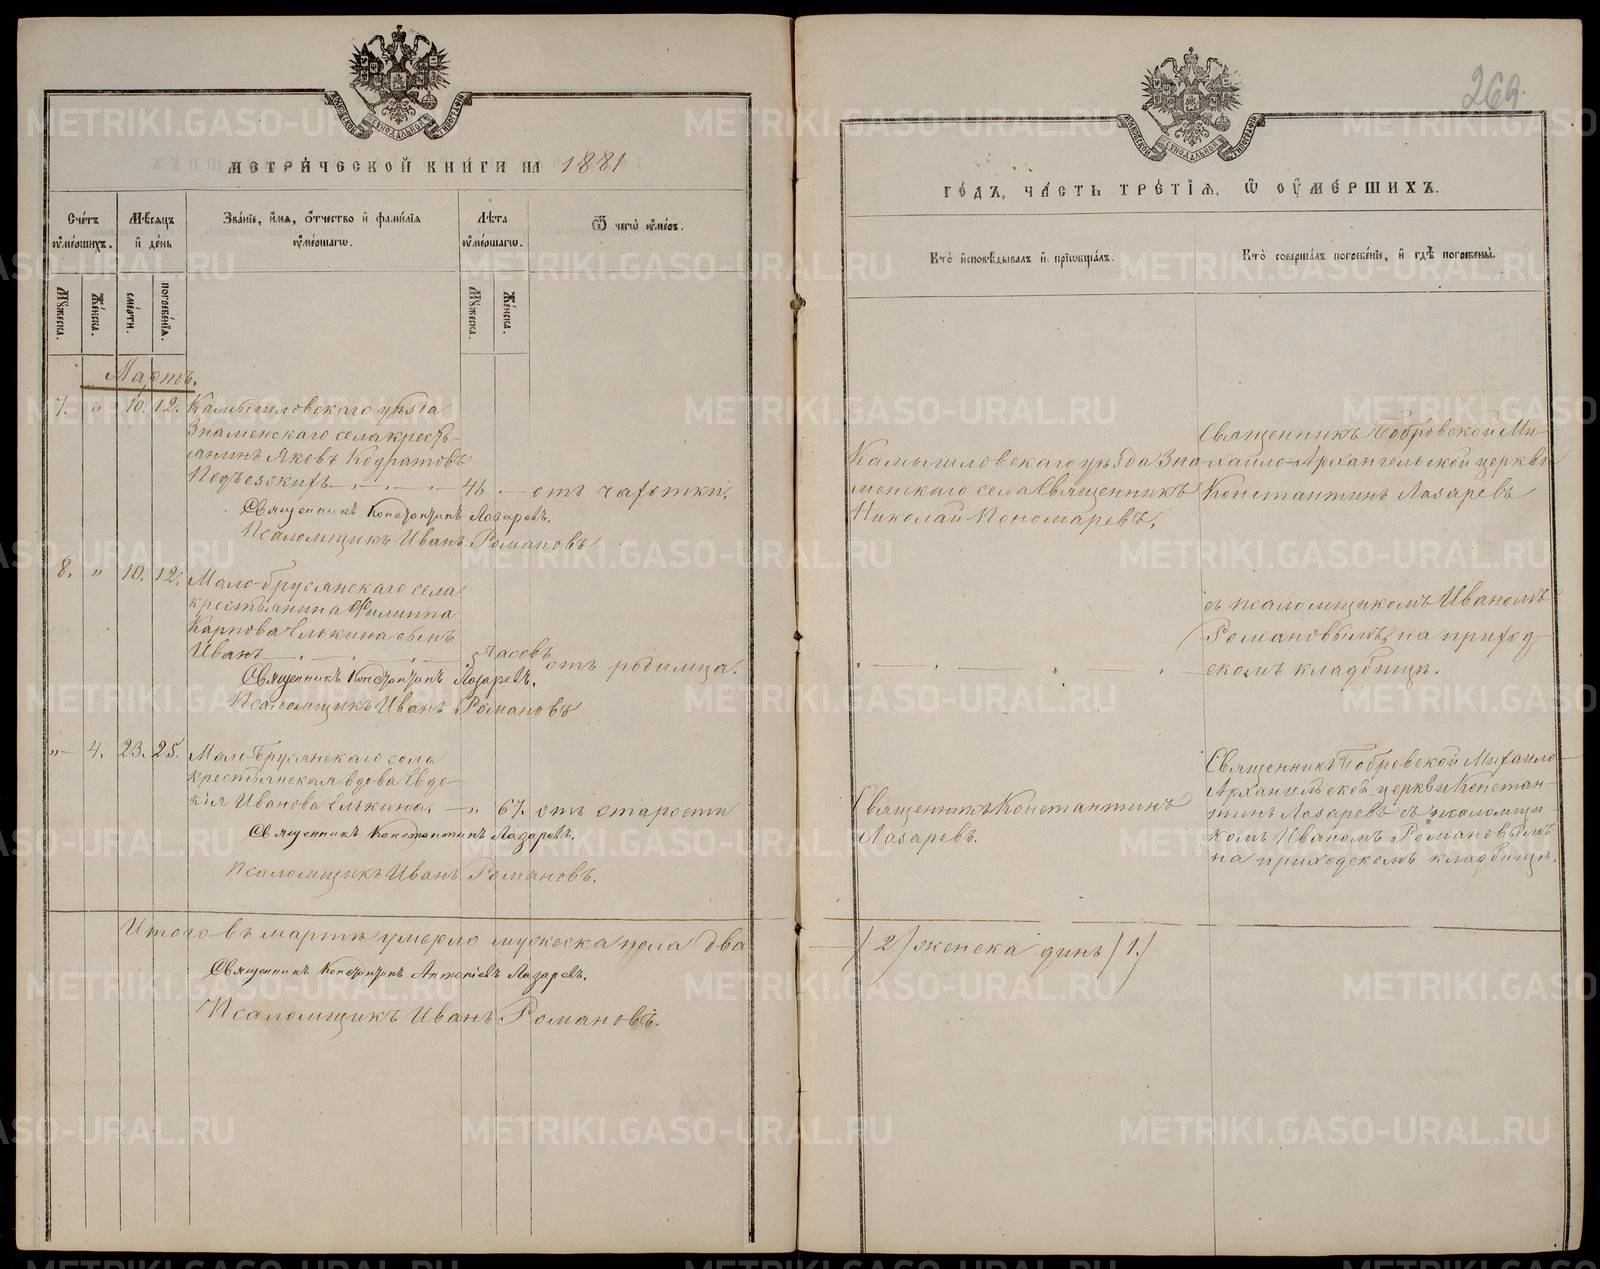 269.
МЕТРИЧЕСКОЙ КНИГИ НА 1881
ГОДЪ, ЧАСТЬ ТРЕТІЯ, Ѿ ОУМЕРШИХЪ.
Счетъ оумершихъ.
Мѣсяцъ и день
Званіе, имя, отчество и фамилія оумершагѡ.
Лѣта оумершагѡ.
Ѿ чегѡ оумеръ.
Кто исповѣдывалъ и пріѡбщалъ.
Кто совершалъ погребеніе, и гдѣ погребены.
Мужеска.
Женска.
смерти.
погребенія.
Мужеска.
Женска.
Мартъ.
7. " 10. 12. Камышловскаго уѣзда
Знаменскаго села кресть-
янинъ Яковъ Кодратовъ
Подъезскихъ 46 . — отъ чахотки.
Священникъ Константинъ Лазаревъ.
Псаломщикъ Иванъ Романовъ
Камышловскаго уѣзда Зна
менскаго села Священникъ
Николай Пономаревъ.
Священникъ Бобровской Ми-
хаило-Архангельской церкви
Константинъ Лазаревъ
8. " 10. 12. Мало-брусянскаго села
крестьянина Филиппа
Карпова Елькина сынъ
Иванъ 5 часовъ отъ родимца.
Священникъ Константинъ Лазаревъ.
Псаломщикъ Иванъ Романовъ
съ псаломщикомъ Иваномъ
Романовымъ, на приход-
скомъ кладбищѣ.
" 4. 23. 25. Мало-Брусянскаго села
крестьянская вдова Евдо-
кія Иванова Елькина. — " 67. отъ старости
Священникъ Константинъ Лазаревъ.
Псаломщикъ Иванъ Романовъ.
Священникъ Константинъ
Лазаревъ.
Священникъ Бобровской Михаило-
Архангельской церкви Констан-
тинъ Лазаревъ съ псаломщи-
комъ Иваномъ Романовымъ
на приходскомъ кладбищѣ.
Итого въ мартѣ умерло мужеска пола два (2) женска динъ (1.)
Священникъ Константинъ Антоніевъ Лазаревъ.
Псаломщикъ Иванъ Романовъ.
METRIKI.GASO-URAL.RU